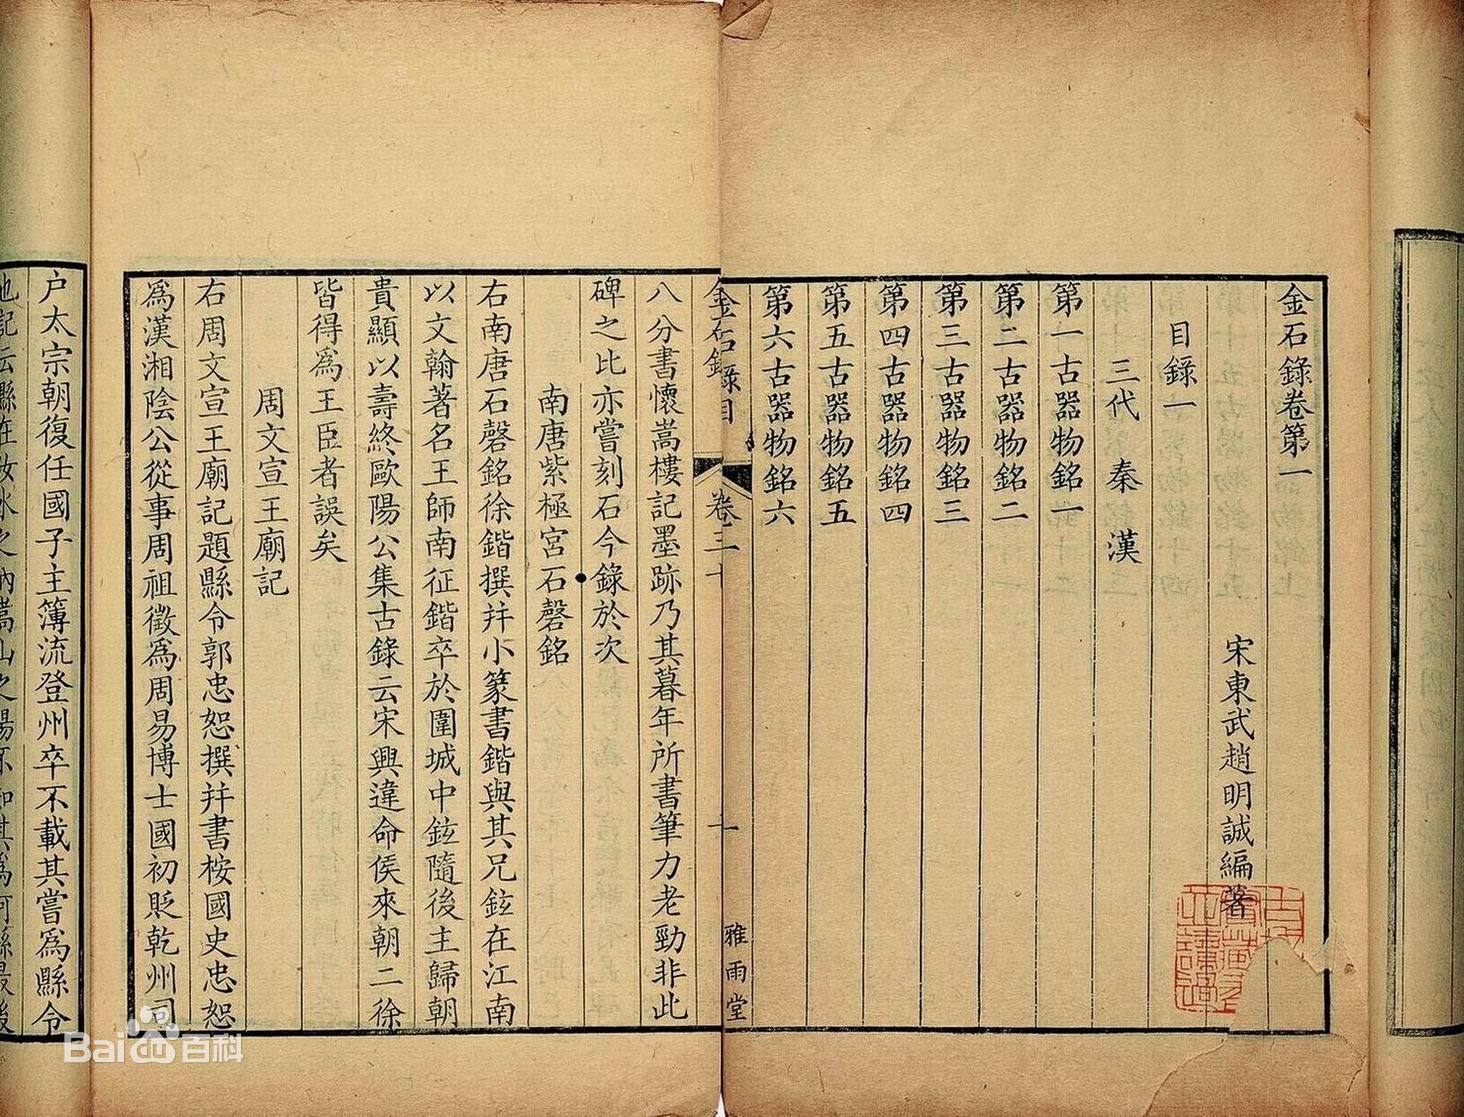 金石錄卷第一
宋東武趙明誠編著
目錄一
三代 秦 漢
第一古器物銘一
第二古器物銘二
第三古器物銘三
第四古器物銘四
第五古器物銘五
第六古器物銘六
雅雨堂
金石錄目
卷三十
十
八分書懷嵩樓記墨跡乃其暮年所書筆力老勁非此
碑之比亦嘗刻石今錄於次
南唐紫極宮石磬銘
右南唐石磬銘徐鍇撰并小篆書鍇與其兄鉉在江南
以文翰著名王師南征鍇卒於圍城中鉉隨後主歸朝
貴顯以壽終歐陽公集古錄云宋興違命侯來朝二徐
皆得爲王臣者誤矣
周文宣王廟記
右周文宣王廟記題縣令郭忠恕撰并書桉國史忠恕
爲漢湘陰公從事周祖徵爲周易博士國初貶乾州司
户太宗朝復任國子主簿流登州卒不載其嘗爲縣令
Bai百科